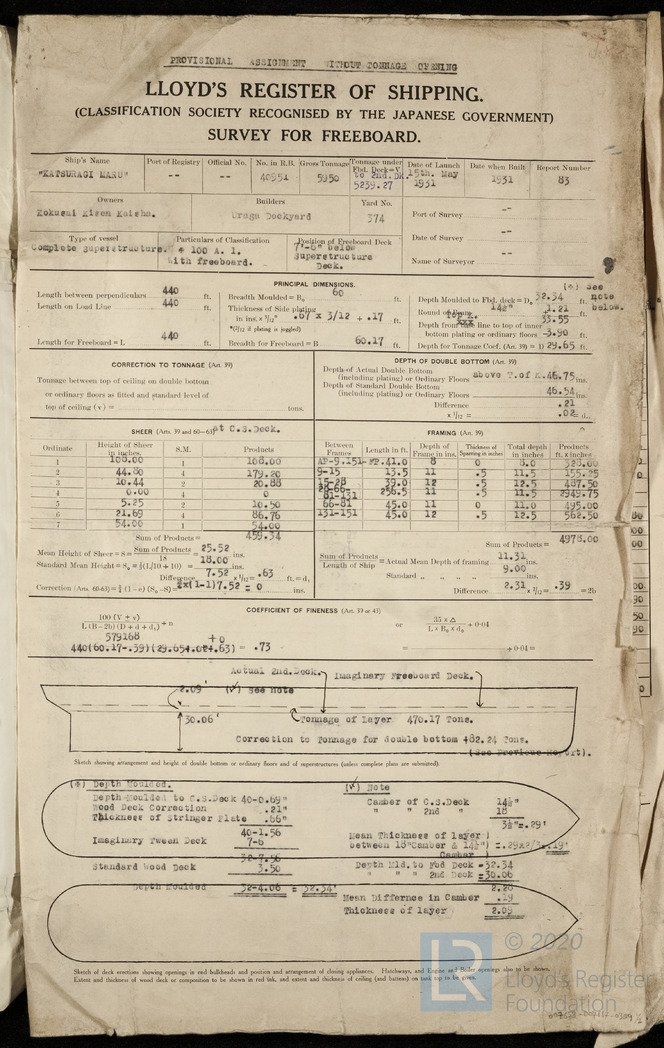 PROVISIONAL ASSIGNMENT WITHOUT TONNAGE OPENING
LLOYD'S REGISTER OF SHIPPING.
(CLASSIFICATION SOCIETY RECOGNISED BY THE JAPANESE GOVERNMENT)
SURVEY FOR FREEBOARD.
Ship's Name Port of Registry Official No. No. in R.B. Gross Tonnage Tonnage under Fbd. Deck to 2nd. Dk. Date of Launch Date when Built Report Number
"KATSURAGI MARU" -- -- 40951 5950 5239.27 15th. May 1931 1931 83
Owners Builders Yard No. Port of Survey --
Kokusai Kisen Kaisha. Uraga Dockyard 374
Date of Survey --
Type of vessel Particulars of Classification Position of Freeboard Deck
Complete Superstructure. + 100 A. 1. With freeboard. 7'-6" below Superstructure Deck.
Name of Surveyor --
PRINCIPAL DIMENSIONS.
(+) See note below.
Length between perpendiculars 440 ft. Breadth Moulded = B₀ 60 ft. Depth Moulded to Fbd. deck = D₀ 32.34
Length on Load Line 440 ft. Thickness of Side plating in ins. x 2/12" .67 x 3/12 + .17 Round of Beam 14½" 1.21
*(3/12 if plating is joggled) Depth from base line to top of inner 33.55
bottom plating or ordinary floors -3.90 ft.
Length for Freeboard = L 440 ft. Breadth for Freeboard = B 60.17 ft. Depth for Tonnage Coef. (Art. 39) = D 29.65 ft.
CORRECTION TO TONNAGE (Art. 39)
Tonnage between top of ceiling on double bottom
or ordinary floors as fitted and standard level of
top of ceiling (v) = tons.
DEPTH OF DOUBLE BOTTOM (Art. 39)
Depth of Actual Double Bottom (including plating) or Ordinary Floors above T.of K. 46.75 ins.
Depth of Standard Double Bottom (including plating) or Ordinary Floors 46.54 ins.
Difference .21
x 1/12 = .02 = d
SHEER (Arts. 39 and 60-63) at C.S.Deck.
Ordinate Height of Sheer in inches. S.M. Products
1 108.00 1 108.00
2 44.80 4 179.20
3 10.44 2 20.88
4 0.00 4 0
5 5.25 2 10.50
6 21.69 4 86.76
7 54.00 1 54.00
Sum of Products = 459.34
Mean Height of Sheer = S = Sum of Products / 18 = 25.52 ins.
Standard Mean Height = S₀ = ½(L/10 + 10) = 18.00 ins.
Difference 7.52 x 1/12 = .63 ft. = d₁
Correction (Arts. 60-63) = ½ (1 - e) (S₀ - S) = ½x(1-1)7.52 = 0 ins.
FRAMING (Art. 39)
Between Frames Length in ft. Depth of Frame in ins. Thickness of Sparring in inches Total depth in inches Products ft. x inches
AP-9.151-FP. 41.0 8 0 8.0 328.00
9-15 13.5 11 .5 11.5 155.25
15-28 39.0 12 .5 12.5 487.50
28-66 81-131 256.5 11 .5 11.5 2949.75
66-81 45.0 11 0 11.0 495.00
131-151 45.0 12 .5 12.5 562.50
Sum of Products = 4978.00
Sum of Products / Length of Ship = Actual Mean Depth of framing 11.31 ins.
Standard " " " " 9.00
Difference 2.31 x 2/12 = .39 = 2b
COEFFICIENT OF FINENESS (Art. 39 or 43)
100 (V + v) / L (B - 2b) (D + d + d₁) + 0
579168 / 440(60.17-.39)(29.65+.02+.63) +0 = .73
or 35 x Δ / L x B₀ x d₀ + 0·04
= + 0·04 =
Actual 2nd.Deck. Imaginary Freeboard Deck.
2.09' (√) See Note
30.06' Tonnage of layer 470.17 Tons.
Correction to Tonnage for double bottom +82.24 Tons.
(See Previous Report).
Sketch showing arrangement and height of double bottom or ordinary floors and of superstructures (unless complete plans are submitted).
(+) Depth Moulded. (√) Note
Depth Moulded to C.S.Deck 40-0.69" Camber of C.S.Deck 14½"
Wood Deck Correction .21" " " 2nd " 18
Thickness of Stringer Plate .66" 3½"=.29'
40-1.56 Mean Thickness of layer )
Imaginary Tween Deck 7-6 between 18"Camber & 14½") =.29x2/3=.19'
32-7.56 Camber )
Standard Wood Deck 3.50 Depth Mld. to Fbd Deck =32.34
" " " 2nd Deck =30.06
Depth Moulded 32-4.06 = 32.34' 2.28
Mean Differnce in Camber .19
Thickness of layer 2.09
Sketch of deck erections showing openings in end bulkheads and position and arrangement of closing appliances. Hatchways, and Engine and Boiler openings also to be shown.
Extent and thickness of wood deck or composition to be shown in red ink, and extent and thickness of ceiling (and battens) on tank top to be given.
LR
© 2020
Lloyd's Register
Foundation